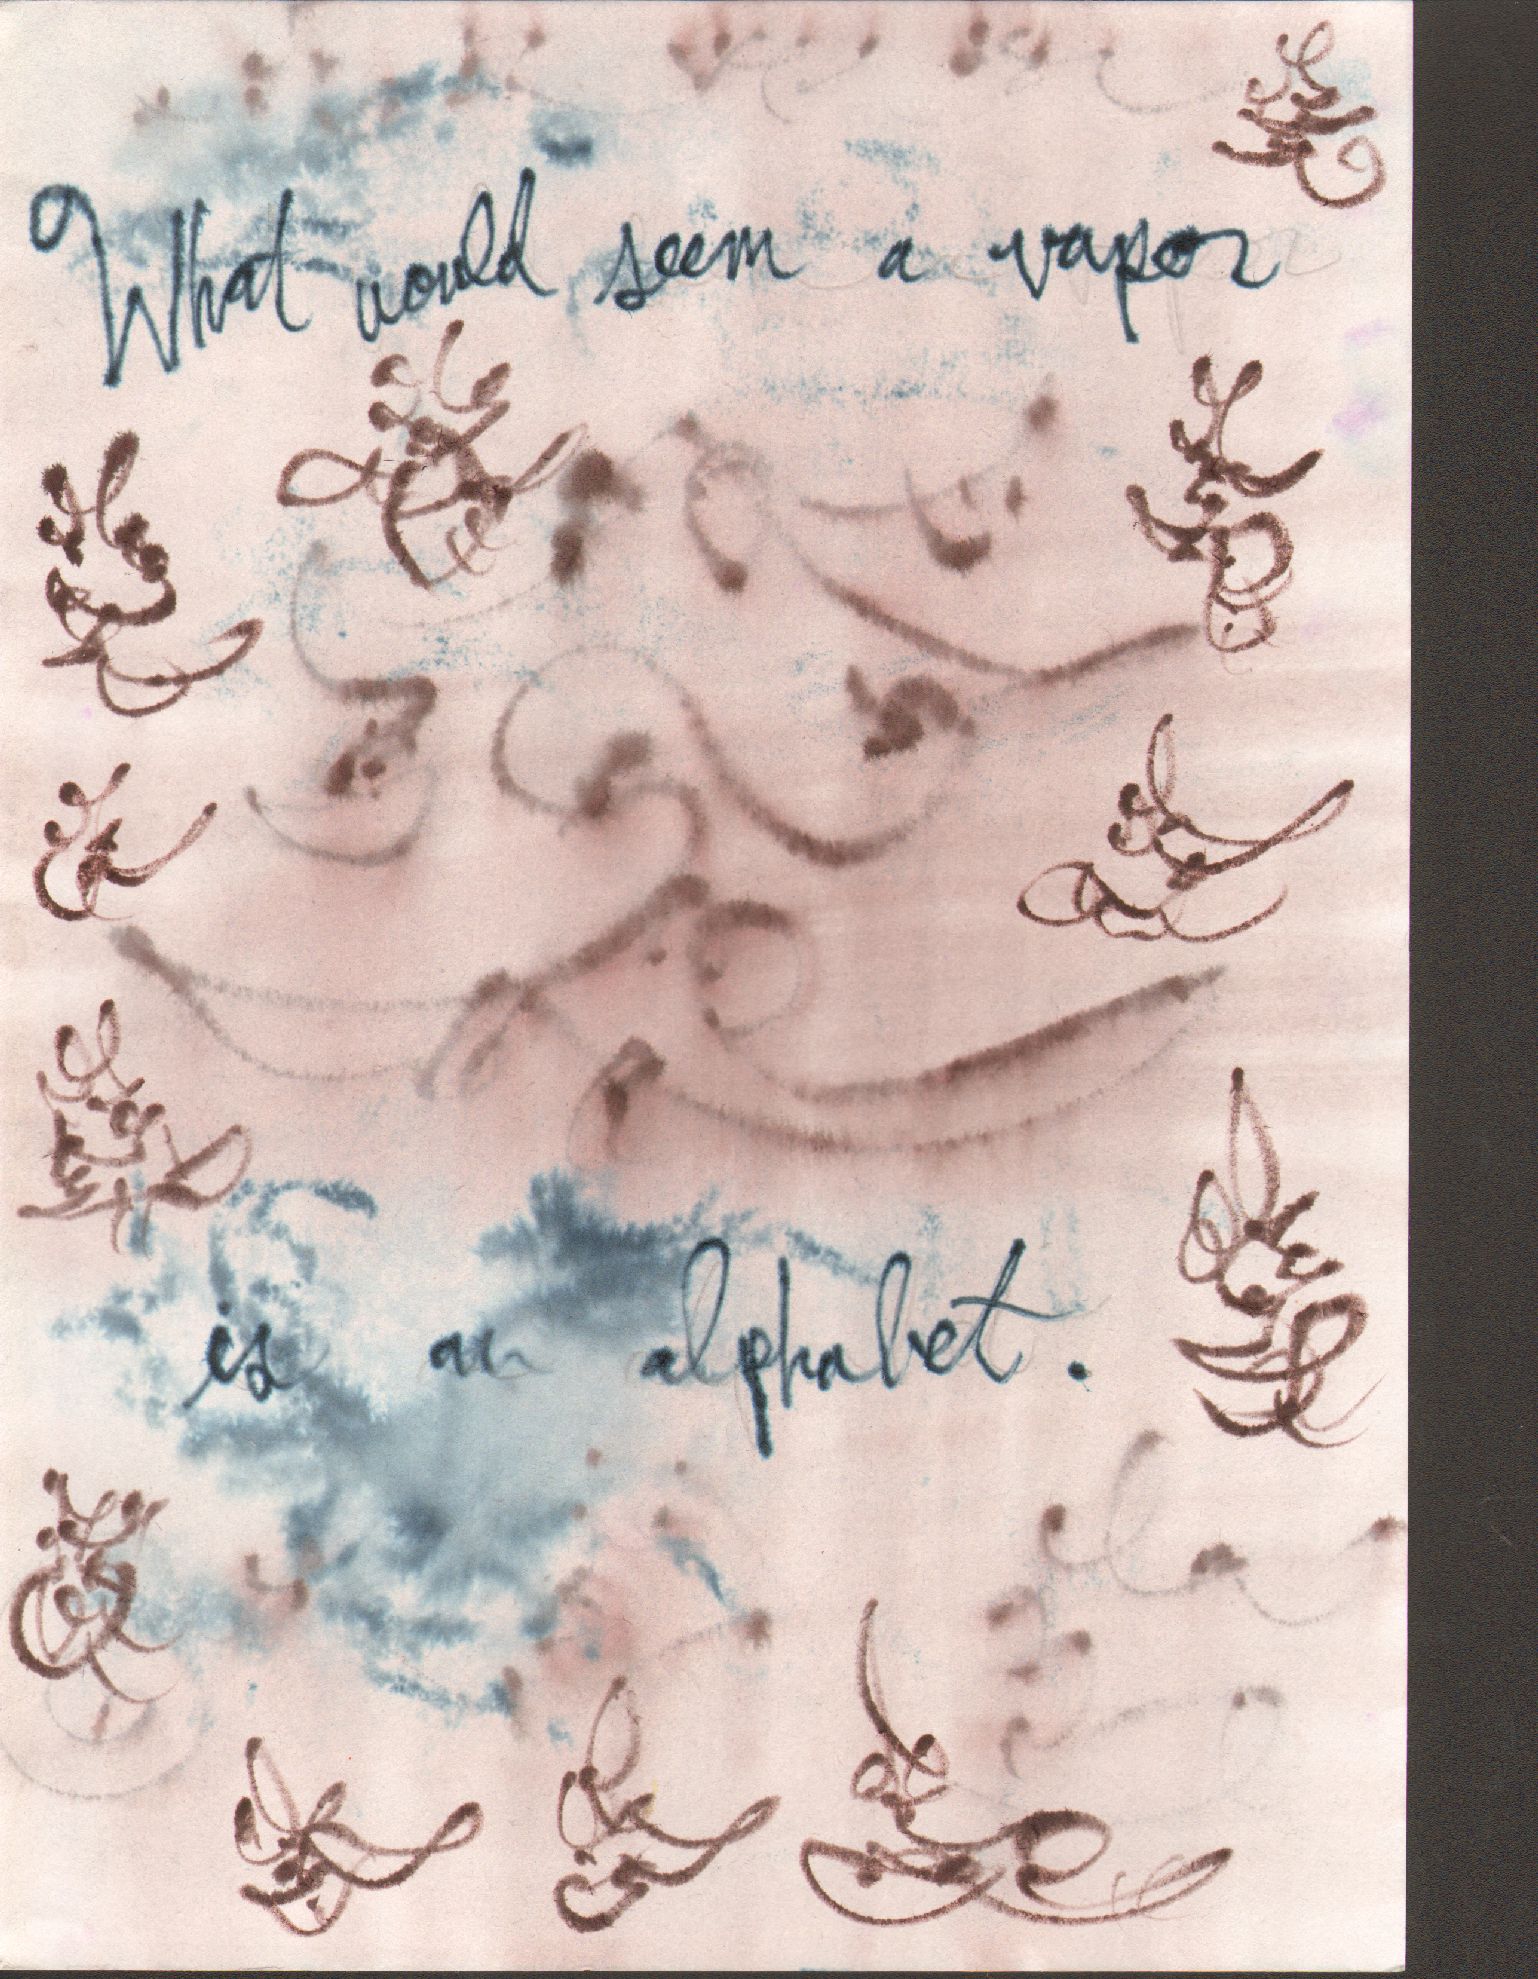 What would seem a vapor
is an alphabet.